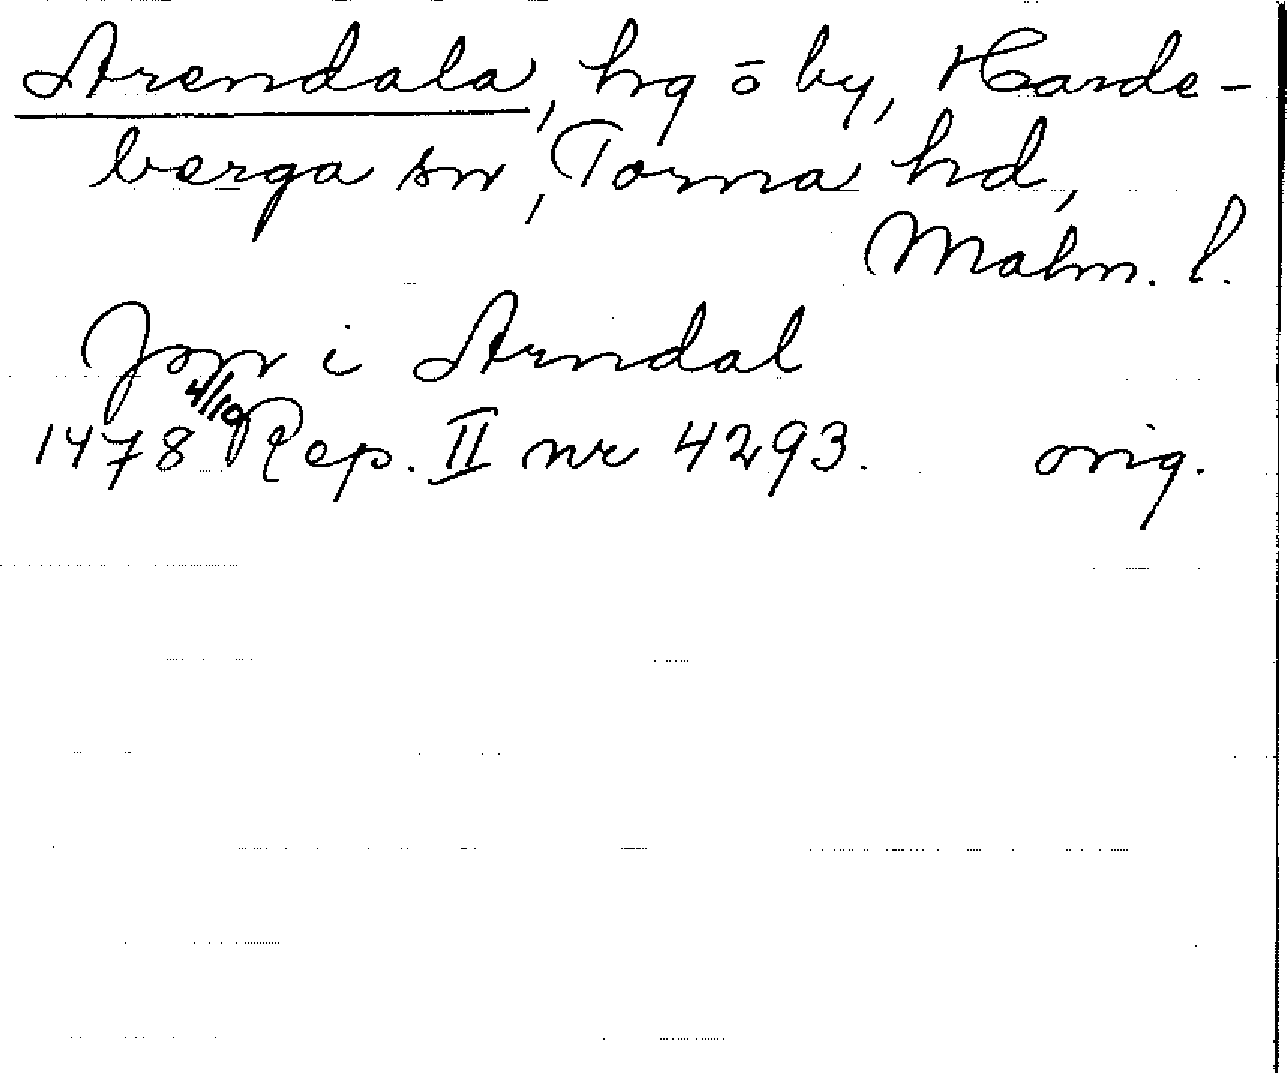 Arendala, hg o by, Harde-
berga sn, Torna hd,
Malm. l.
i Arndal
1478 4/10 Rep. II nr 4293. orig.